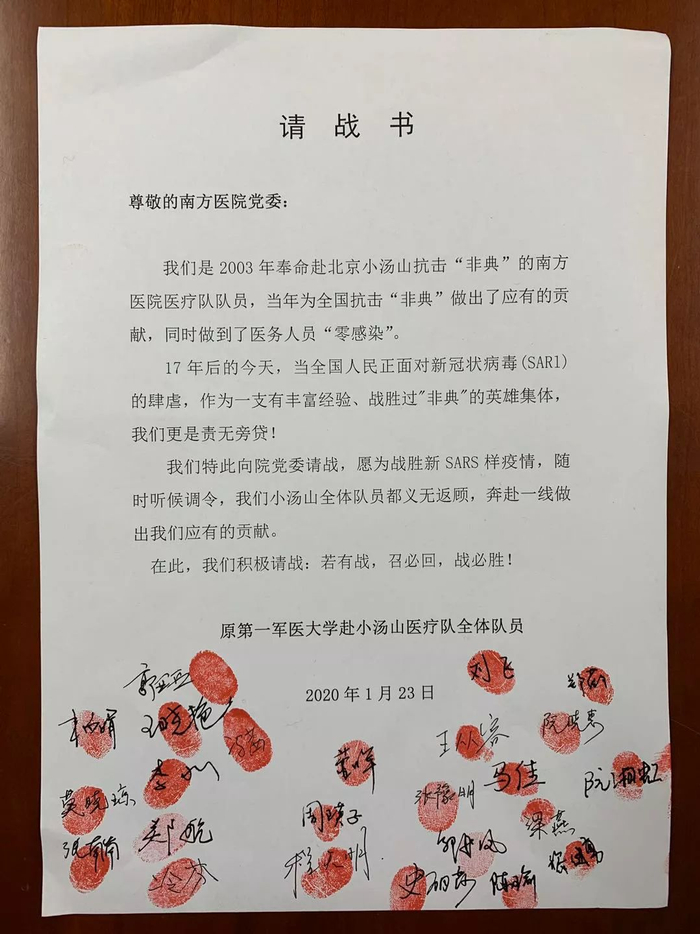 请战书
尊敬的南方医院党委：
我们是2003年奉命赴北京小汤山抗击“非典”的南方
医院医疗队队员，当年为全国抗击“非典”做出了应有的贡
献，同时做到了医务人员“零感染”。
17年后的今天，当全国人民正面对新冠状病毒(SARl)
的肆虐，作为一支有丰富经验、战胜过"非典"的英雄集体，
我们更是责无旁贷！
我们特此向院党委请战，愿为战胜新SARS样疫情，随
时听候调令，我们小汤山全体队员都义无返顾，奔赴一线做
出我们应有的贡献。
在此，我们积极请战：若有战，召必回，战必胜！
原第一军医大学赴小汤山医疗队全体队员
2020年1月23日
刘飞
王晓艳
阮晓惠
王从容
李
马佳
张豫明
阮湘虹
莫晓琼
周瑛子
梁燕
张南南
郑航
程人明
陈瑜